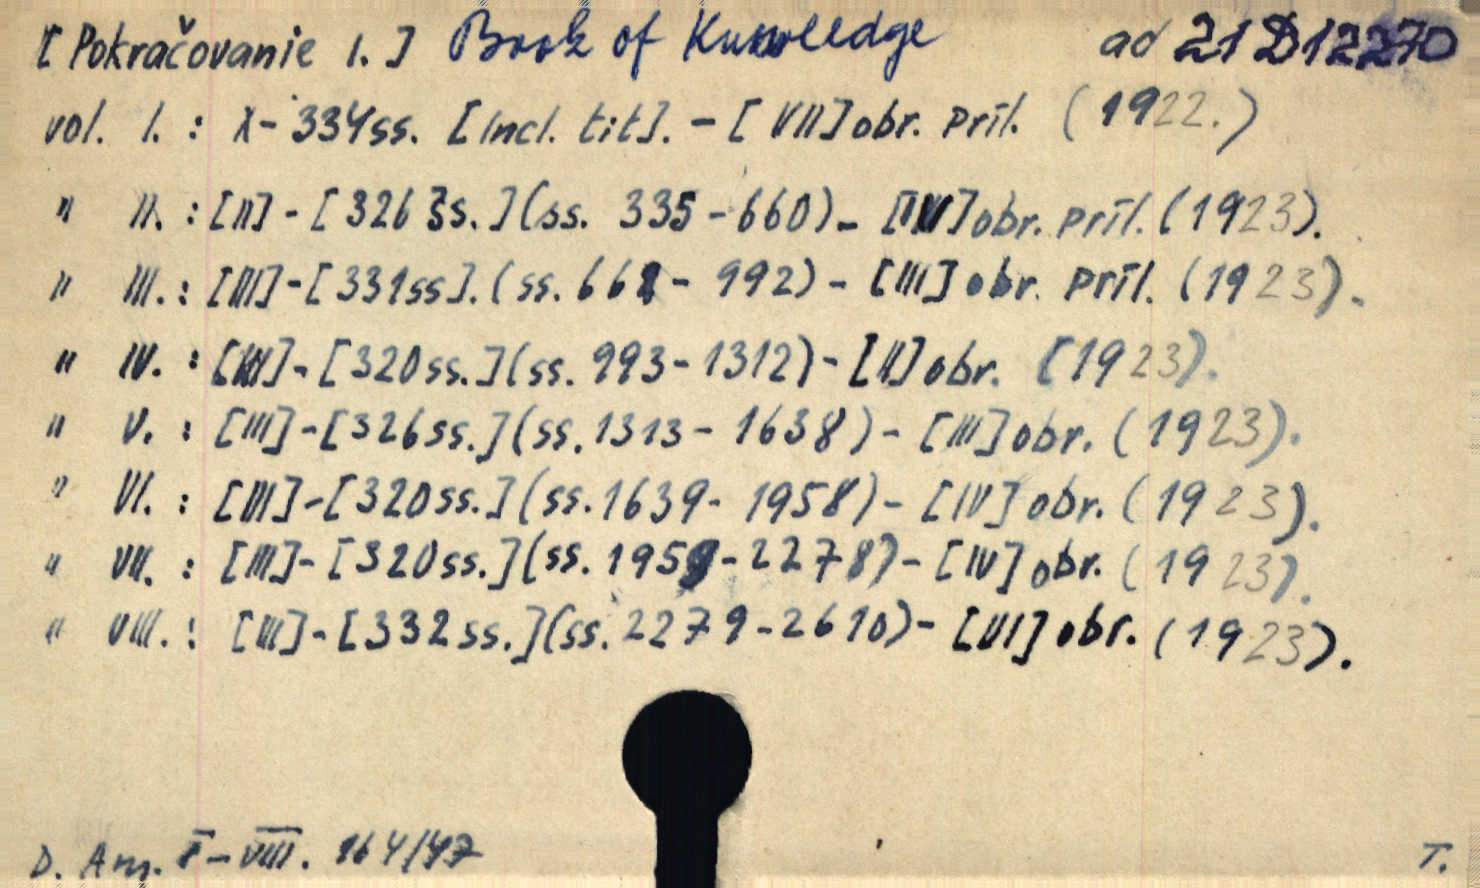 [Pokračovanie 1.] Book of Knowledge ad 21 D 12270
vol. I. : X- 334ss. [Incl. tit]. - [VII] obr. príl. (1922.)
" II. : [II] - [326 ss.] (ss. 335-660) - [IV] obr. príl. (1923).
" III. : [III] - [331ss]. (ss. 661- 992) - [III] obr. príl. (1923).
" IV. : [III] - [320ss.] (ss. 993-1312) - [II] obr. (1923).
" V. : [III] - [326ss.] (ss. 1313 - 1638) - [III] obr. (1923).
" VI. : [III] - [320ss.] (ss. 1639- 1958) - [IV] obr. (1923).
" VII. : [III] - [320ss.] (ss. 1959-2278) - [IV] obr. (1923).
" VIII. : [III] - [332ss.] (ss. 2279-2610) - [VI] obr. (1923).
D. Am. I-VIII. 164/47 T.